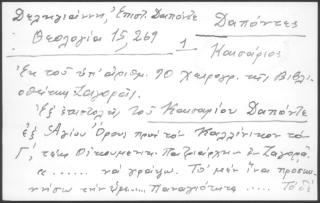 Δεληγιάννη, Ἐπιστ. Δαπόντε Δαπόντες
Θεολογία 15, 269 1 Καισάριος
Ἐκ τοῦ ὑπ' ἀριθμ. 90 χειρογρ. τῆς Βιβλι-
οθήκης Ζαγορᾶς.
Ἐξ ἐπιστολῆς τοῦ Καισαρίου Δαπόντε
ἐξ Ἁγίου Ὄρους πρὸς τὸν Καλλίνικον τὸν
Γ΄, τέως Οἰκουμενικ. Πατριάρχην ἐν Ζαγορᾷ
..... νὰ γράψω. Τὸ μὲν ἵνα προσκυ-
νήσω τὴν ὑμ.... Παναγιότητα ..... Τὸ δὲ